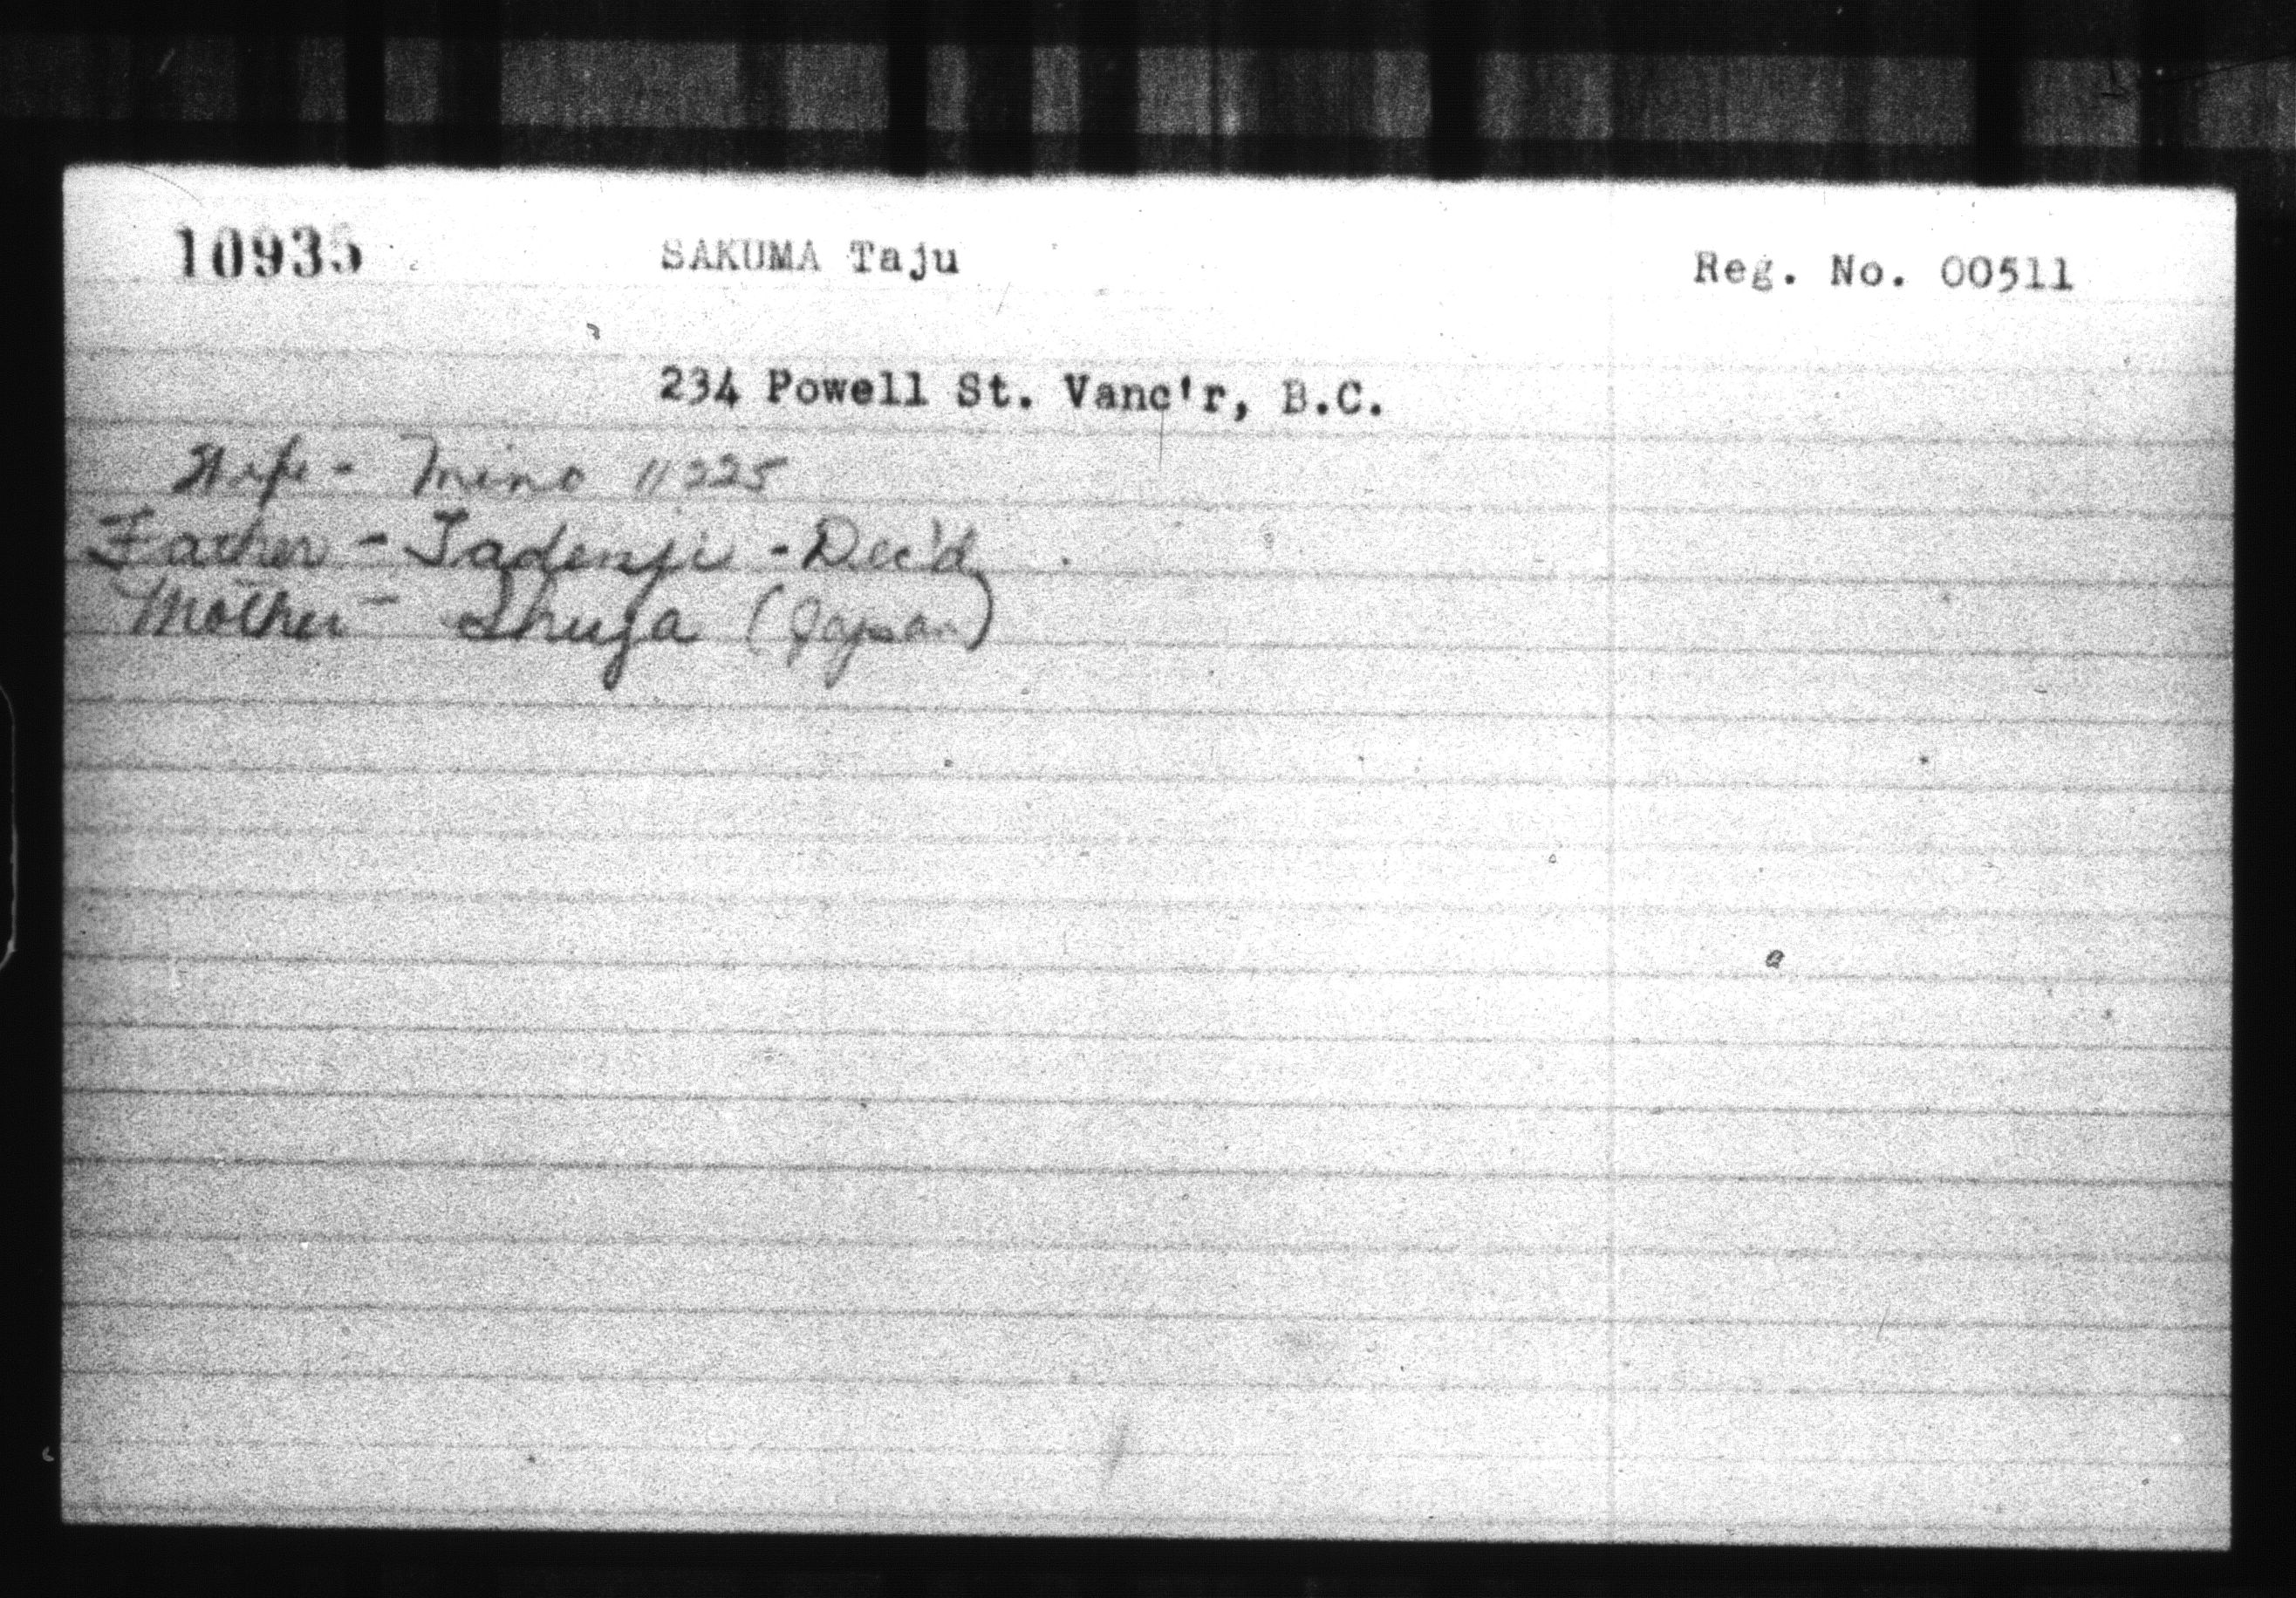 10935 SAKUMA Taju Reg. No. 00511
234 Powell St. Vanc'r, B.C.
Wife - Mino 11225
Father - Tadenji - Dec'd
Mother - Shuga (Japan)